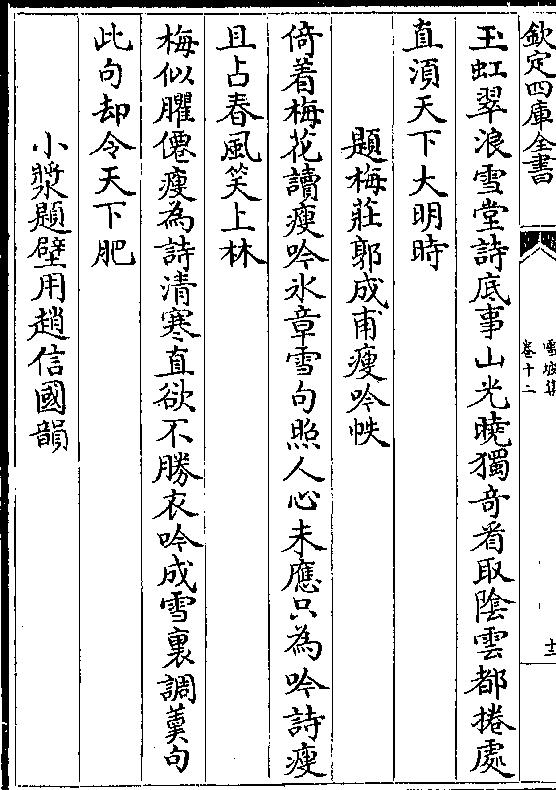 欽定四庫全書
雪坡集
卷十二
十三
玉虹翠浪雪堂詩底事山光曉獨奇看取陰雲都捲處
直須天下大明時
題梅莊郭成甫瘦吟帙
倚着梅花讀瘦吟氷章雪句照人心未應只為吟詩瘦
且占春風笑上林
梅似臞僊瘦為詩清寒直欲不勝衣吟成雪裏調羹句
此句却令天下肥
小漿題壁用趙信國韻